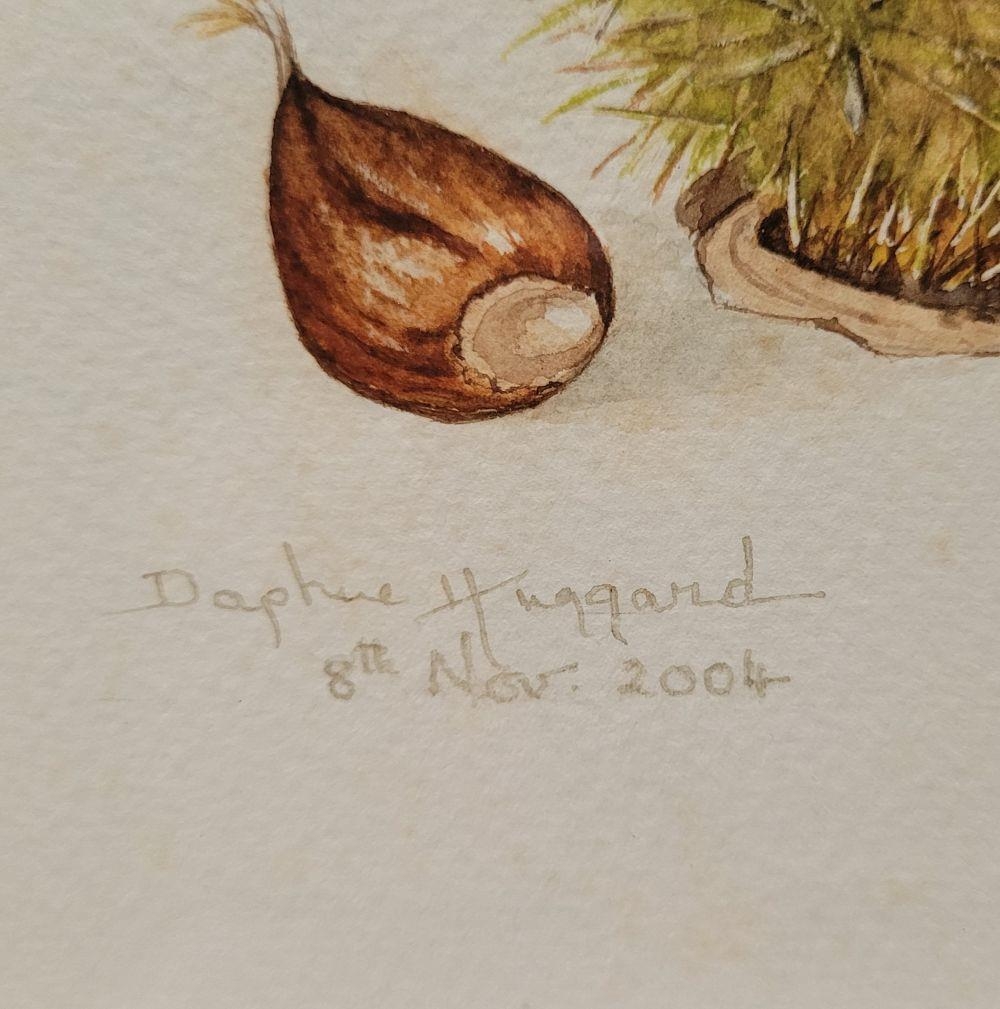 Daphne Huggard
8th Nov. 2004